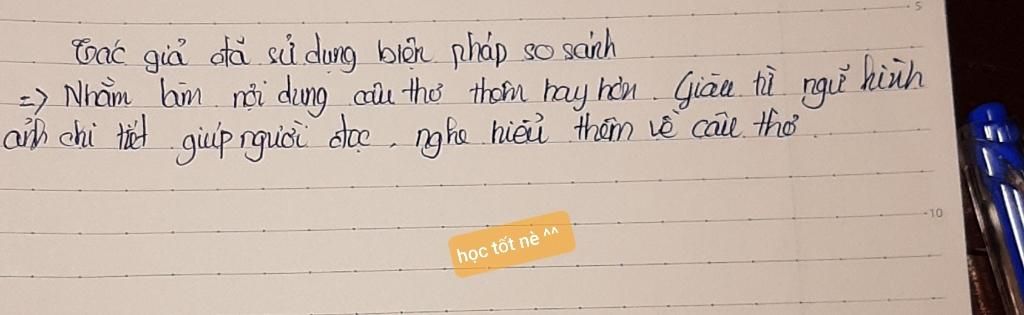 Tác giả đã sử dụng biện pháp so sánh
=> Nhằm làm nội dung câu thơ thêm hay hơn. Giàu từ ngữ hình
ảnh chi tiết giúp người đọc, nghe hiểu thêm về câu thơ.
học tốt nè ^^
5
10